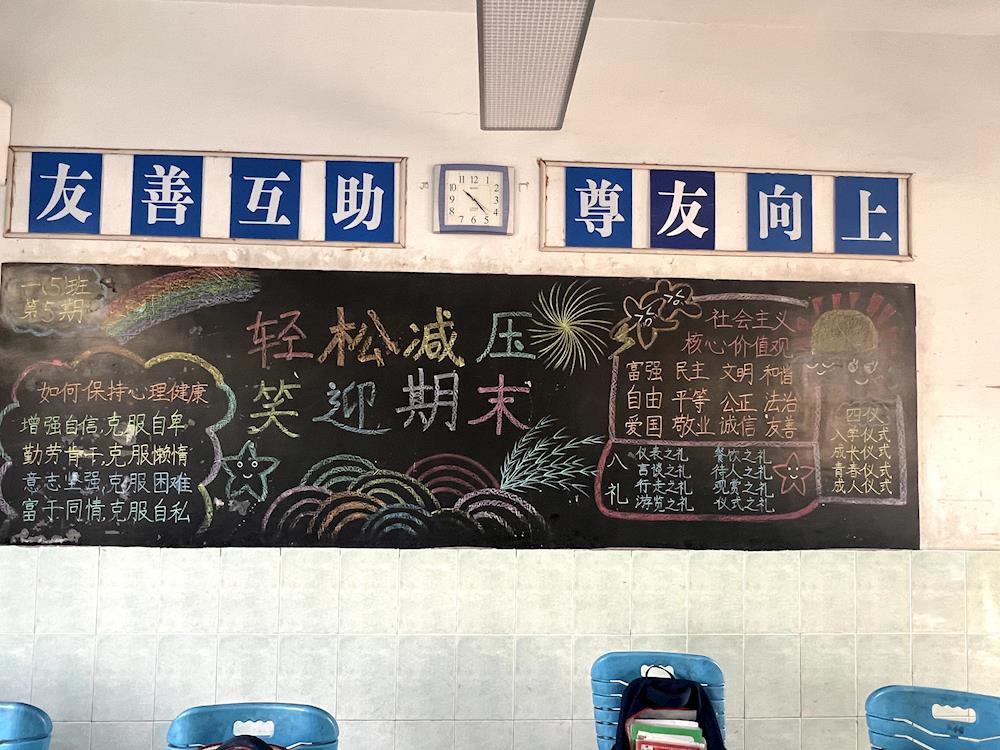 友善互助
尊友向上
12
11
1
10
2
9
3
8
4
7
5
6
一(5)班
第5期
轻松减压
笑迎期末
如何保持心理健康
增强自信,克服自卑
勤劳肯干,克服懒惰
意志坚强,克服困难
富于同情,克服自私
社会主义
核心价值观
富强 民主 文明 和谐
自由 平等 公正 法治
爱国 敬业 诚信 友善
八礼
仪表之礼 餐饮之礼
言谈之礼 待人之礼
行走之礼 观赏之礼
游览之礼 仪式之礼
四仪
入学仪式
成长仪式
青春仪式
成人仪式